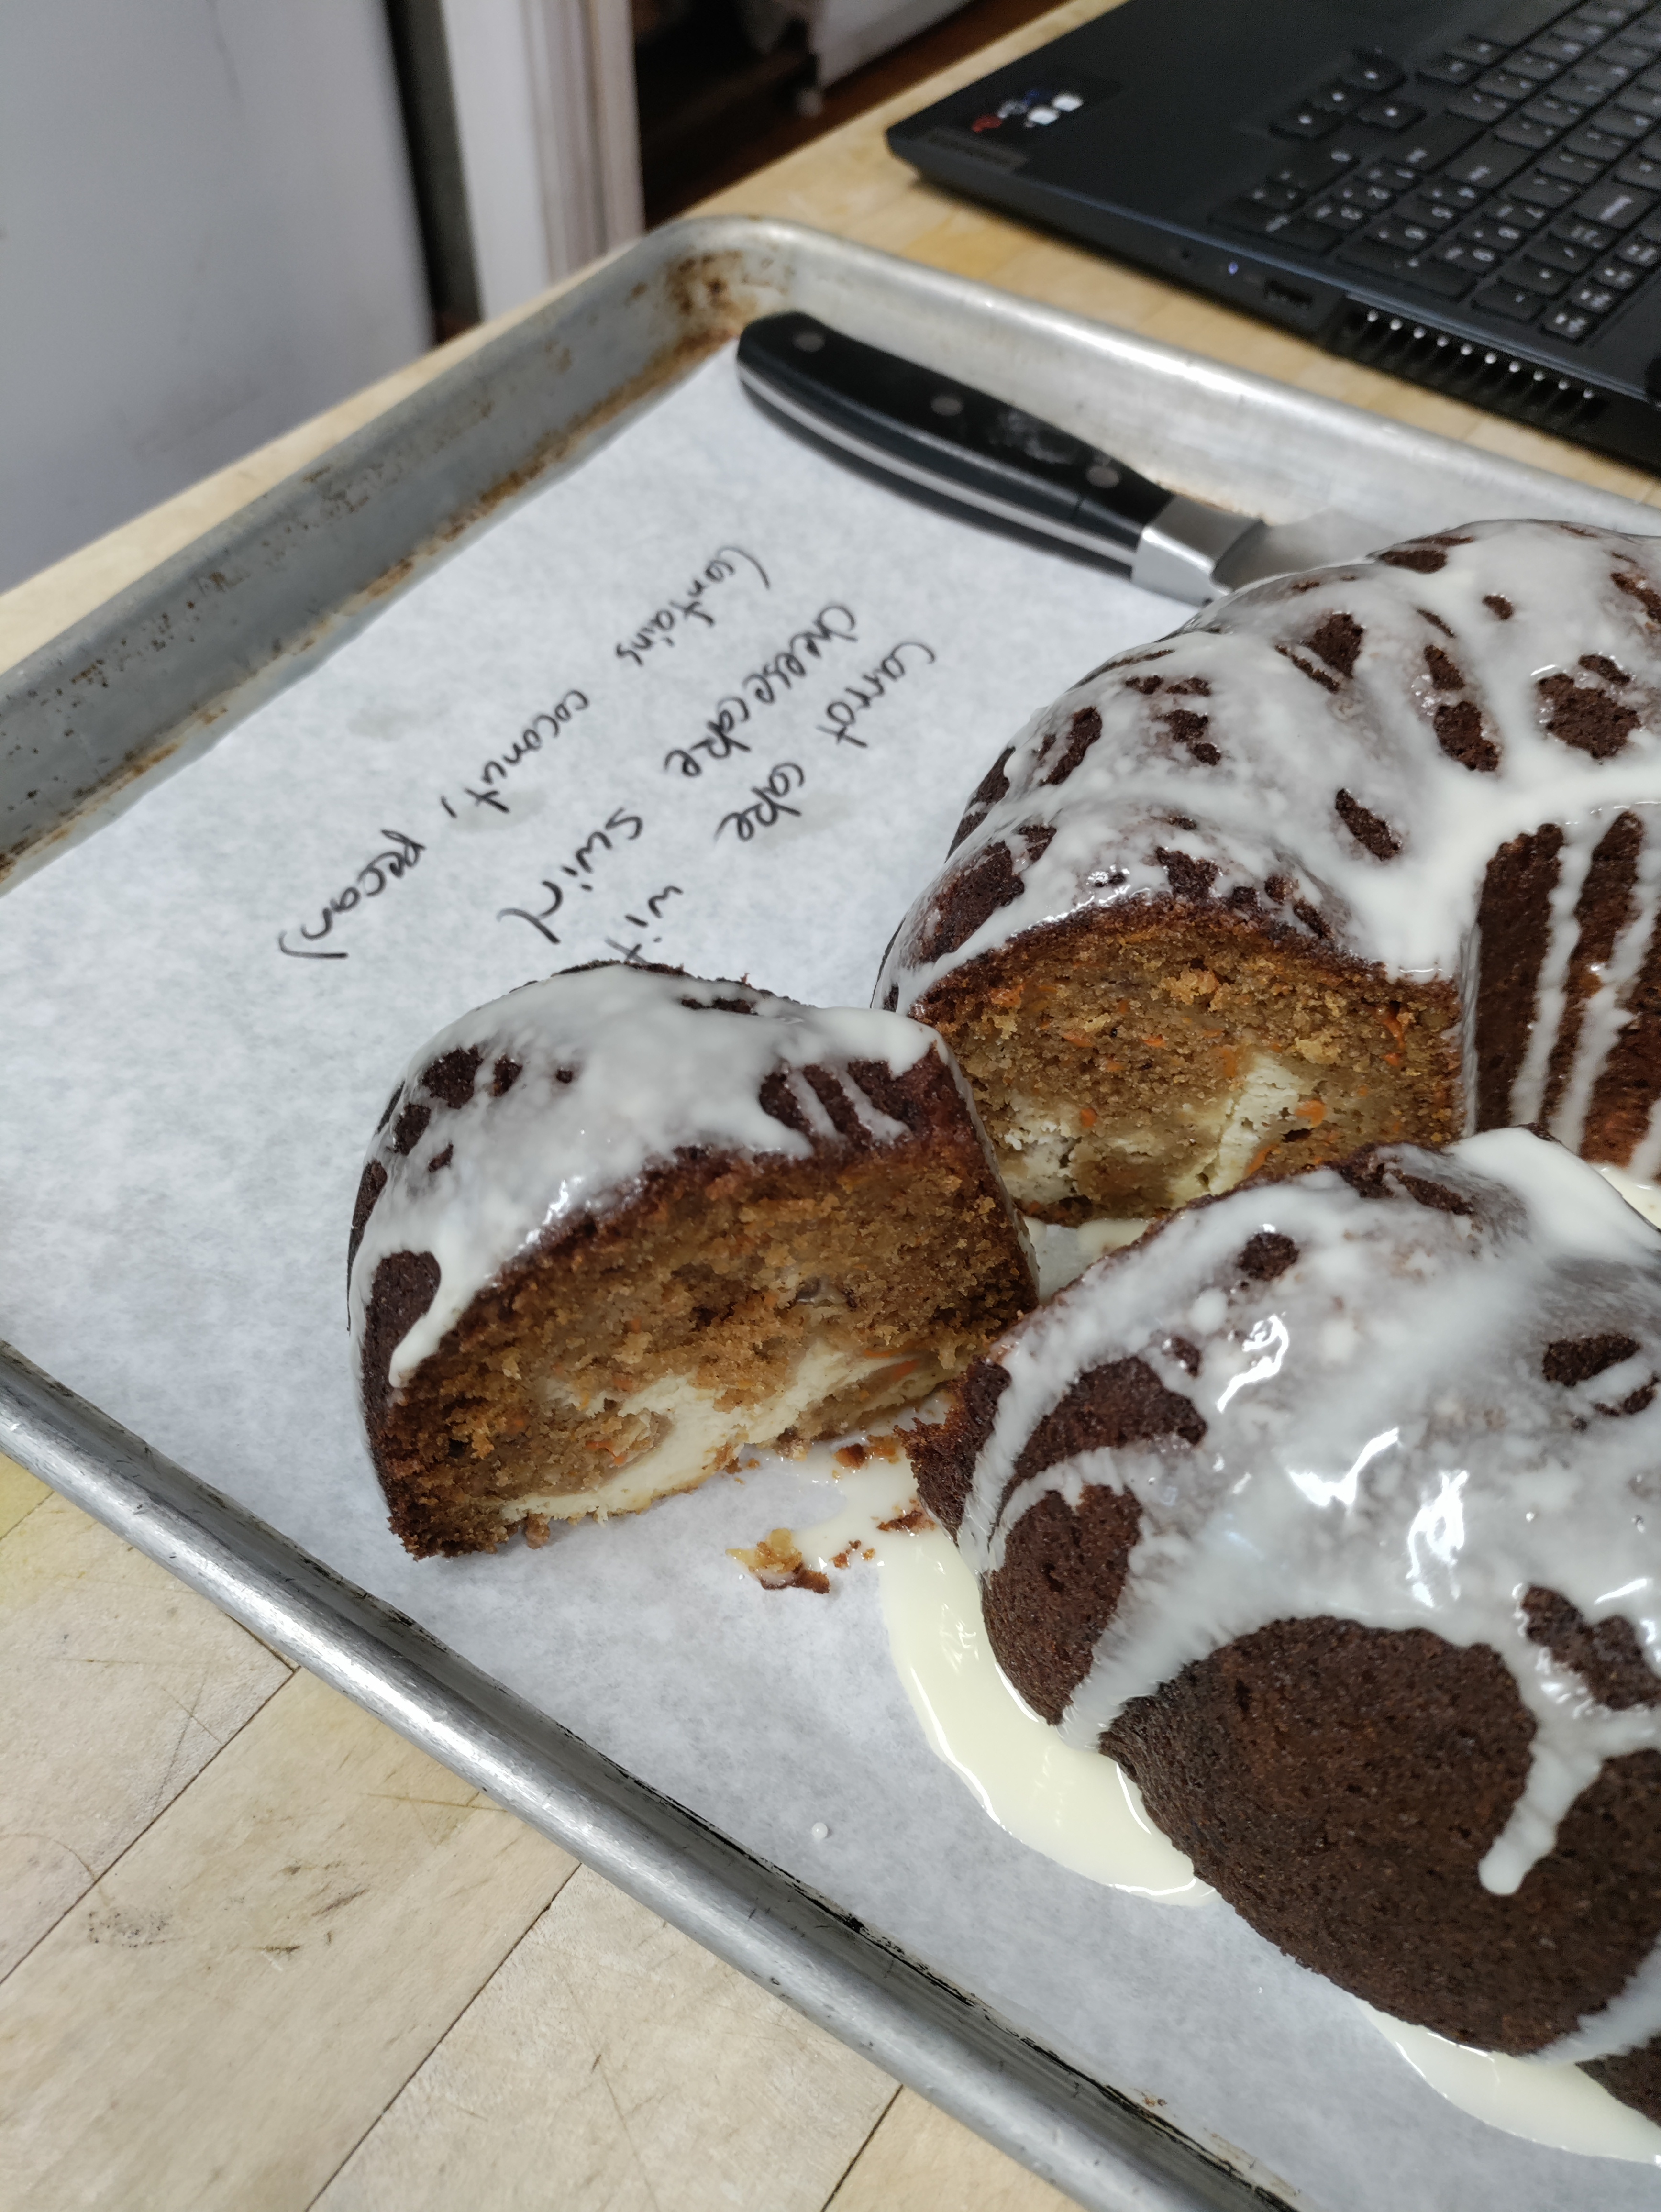 carrot cake wit
cheesecake swirl
(contains coconut, pecan)